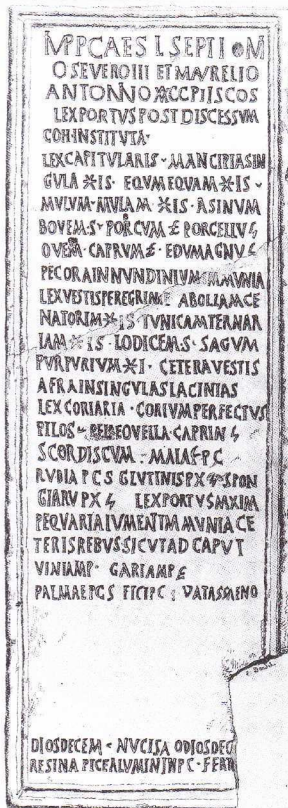 IMP CAES L SEPTIMI
O SEVERO III ET M AVRELIO
ANTONINO AVGG PIIS COS
LEX PORTVS POST DISCESSVM
COH INSTITVTA ·
LEX CAPITVLARIS · MANCIPIA SIN
GVLA X IS · EQVM EQVAM X IS ·
MVLVM · MVLAM X IS · ASINVM
BOVEM S · PORCVM £ PORCELLV ς
OVEM · CAPRVM £ · EDVM AGNV ς
PECORA IN NVNDINIVM IMMVNIA
LEX VESTIS PEREGRINE ABOLLAM CE
NATORIM X IS TVNICAM TERNAR
IAM X IS · LODICEM S · SAGVM
PVRPVRIVM X I · CETERA VESTIS
AFRA IN SINGVLAS LACINIAS
LEX CORIARIA · CORIVM PERFECTVS
PILOS · PELLE OVELLA · CAPRIN ς
SCORDISCVM · MALA P C
RVBIA P C S GLVTINIS P X SPON
GIARV P X ς LEX PORTVS MXIMA
PEQVARIA IVMENTM MVNIA CE
TERIS REBVS · SICVT AD CAPVT
VINI AMP · GARI AMP £
PALMAE P C S FICI P C VATASSAE MO
DIOS DECEM · NVCIS A ODIOS DEC
RESINA PICE ALVMIN IN P C · FERR